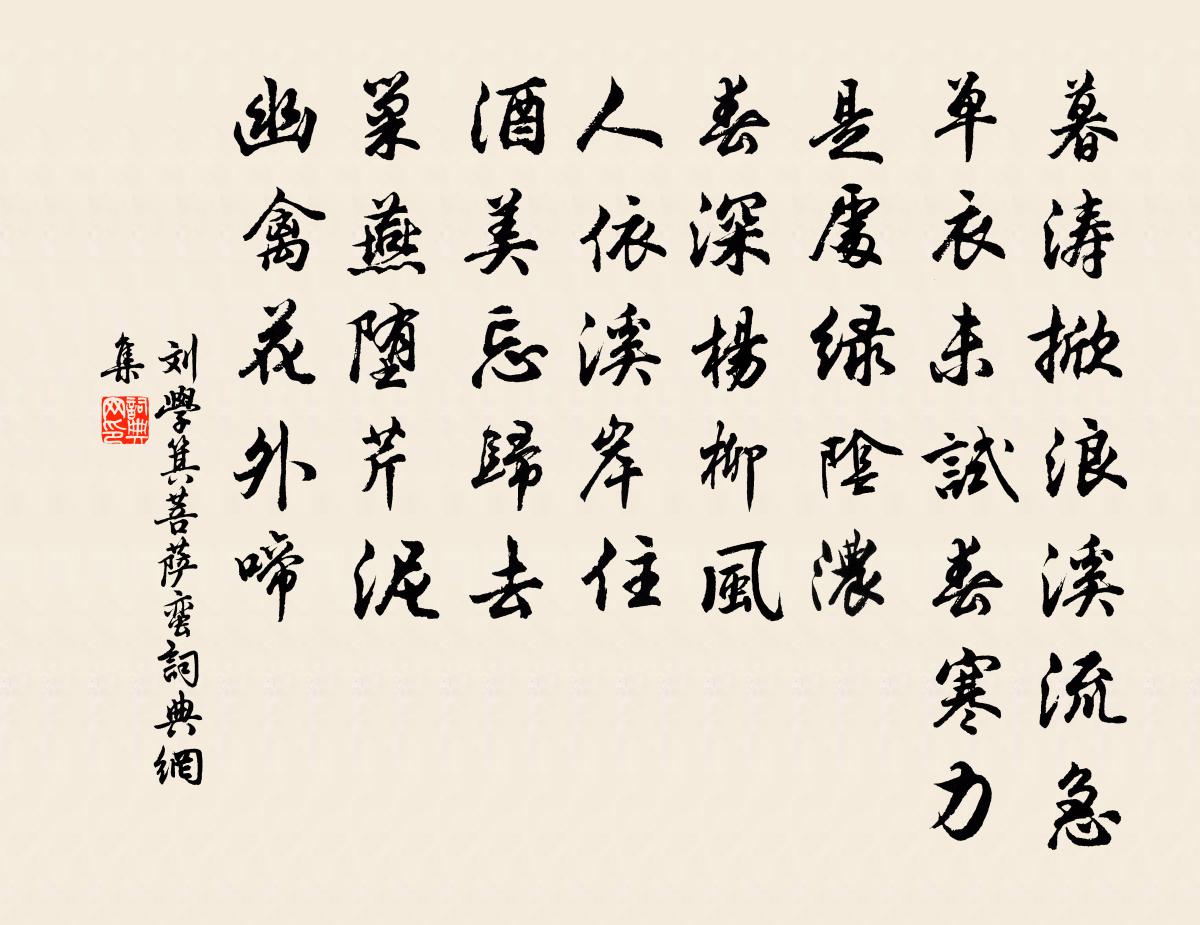 暮涛掀浪溪流急
单衣未試春寒力
是處绿陰濃
春深楊柳風
人依溪岸住
酒美忘歸去
巢燕堕芹泥
幽禽花外啼
刘學箕菩萨蛮詞典網
集
詞典网印